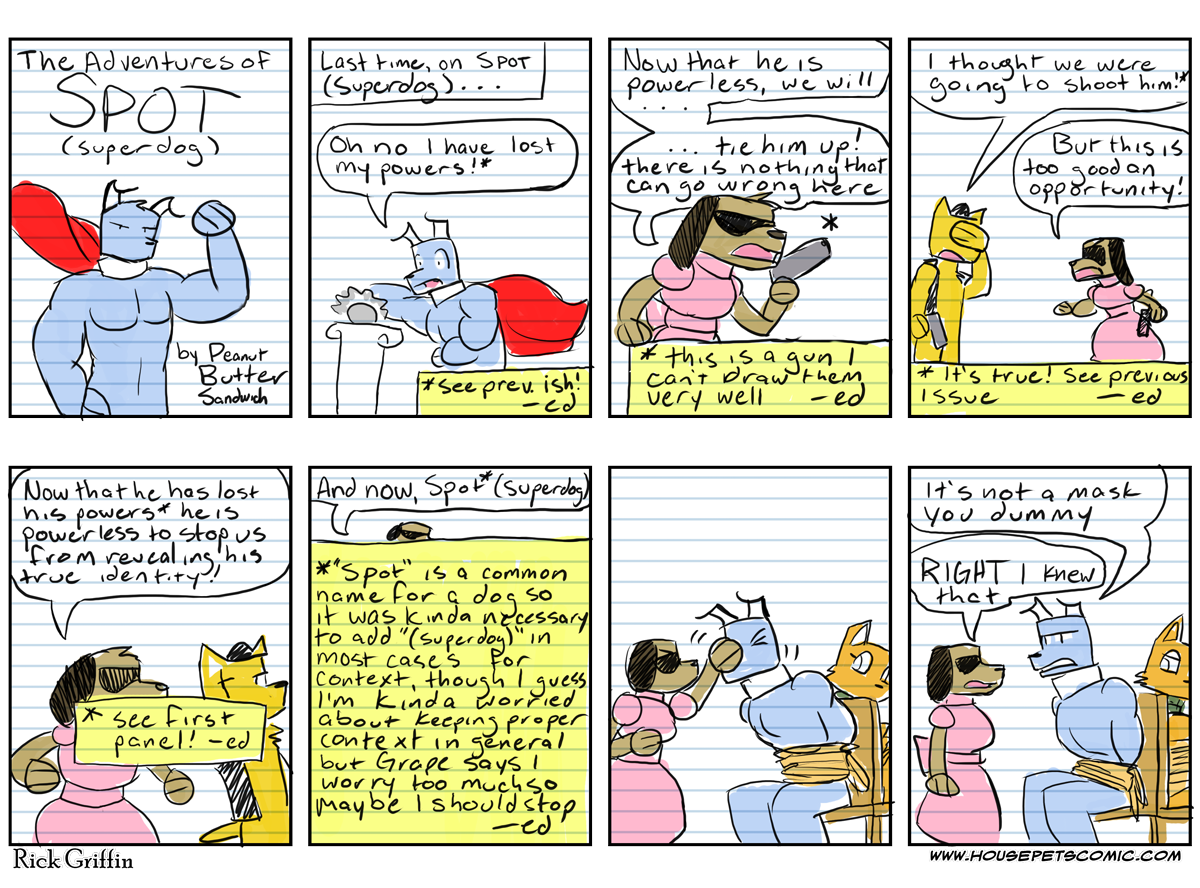 The Adventures of
SPOT
(superdog)
by Peanut
Butter
Sandwich
Last time, on SPOT
(Superdog)...
Oh no I have lost
my powers!*
*see prev. ish!
—ed
Now that he is
powerless, we will
....
... tie him up!
there is nothing that
can go wrong here
*
* this is a gun I
can't draw them
very well —ed
I thought we were
going to shoot him!*
But this is
too good an
opportunity!
* It's true! See previous
issue —ed
Now that he has lost
his powers* he is
powerless to stop us
from revealing his
true identity!
* see first
panel! —ed
And now, Spot* (superdog)
*"Spot" is a common
name for a dog so
it was kinda necessary
to add "(superdog)" in
most cases for
context, though I guess
I'm kinda worried
about keeping proper
context in general
but Grape says I
worry too much so
maybe I should stop
—ed
It's not a mask
you dummy
RIGHT I knew
that
Rick Griffin
www.housepetscomic.com